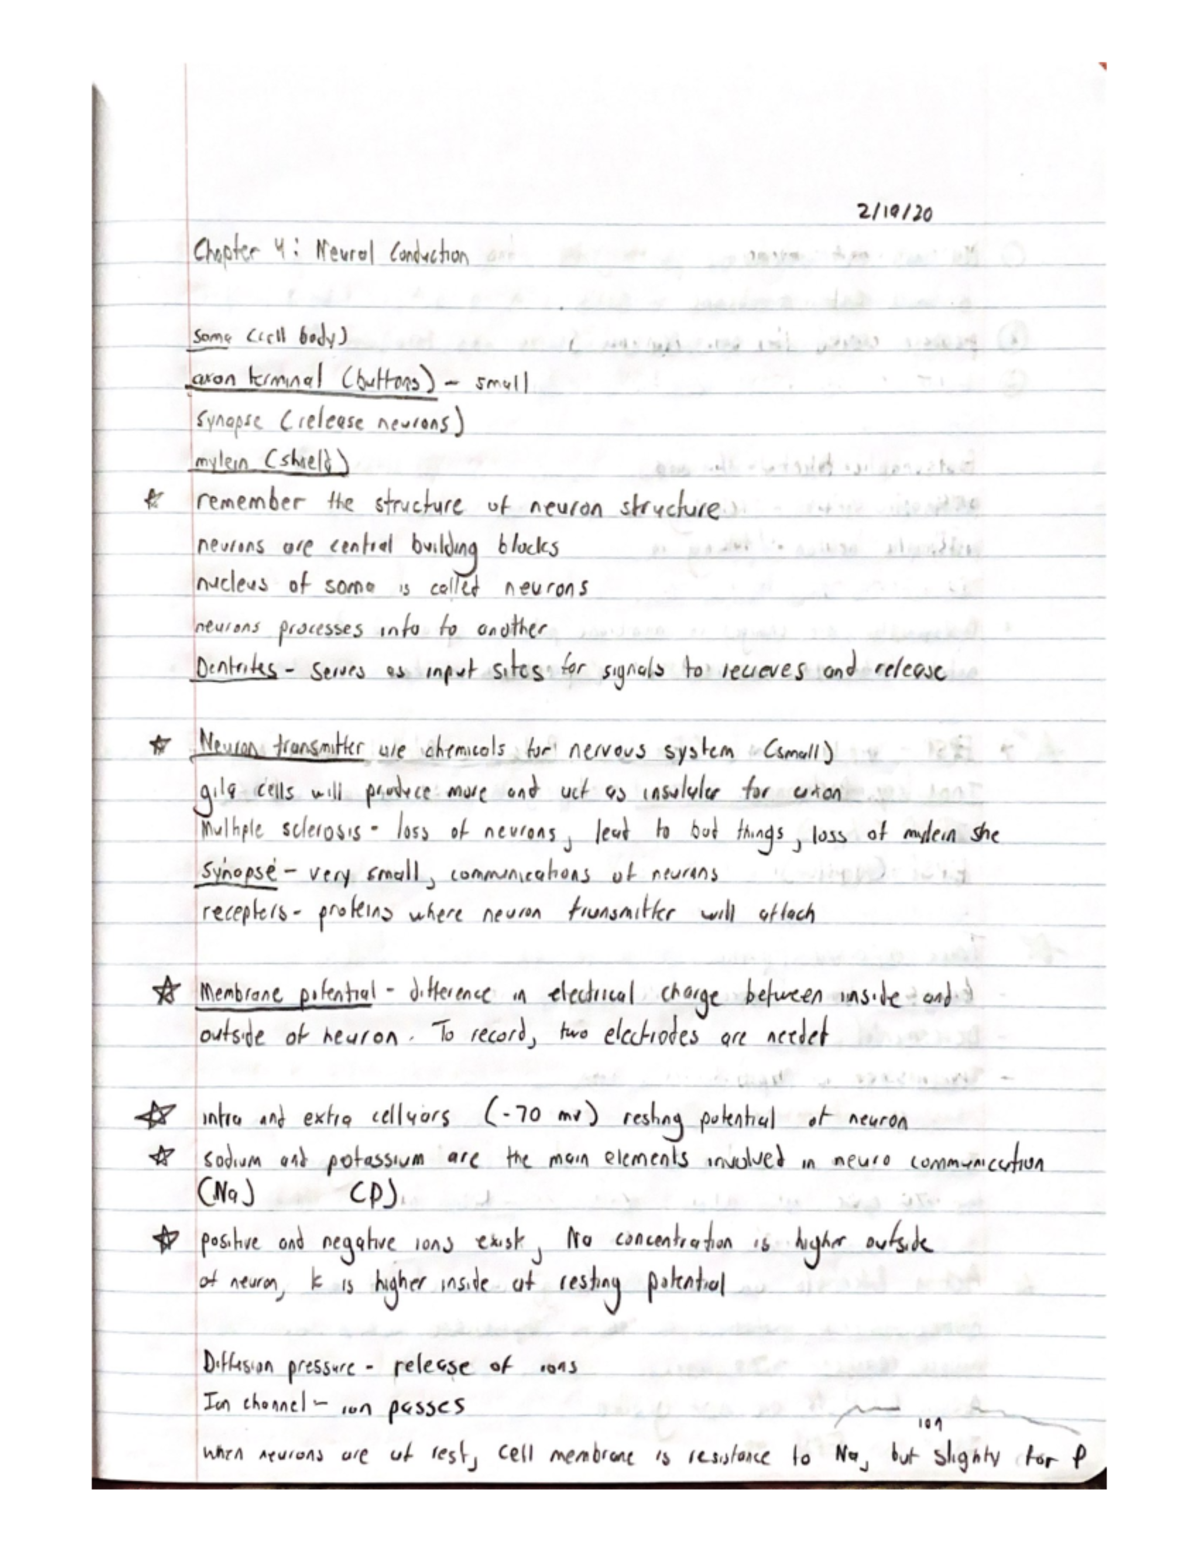 2/19/20
Chapter 4: Neural Conduction
soma (cell body)
axon terminal (buttons) - small
synapse (release neurons)
mylein (shield)
☆ remember the structure of neuron structure
neurons are central building blocks
nucleus of soma is called neurons
neurons processes info to another
Dentrites - serves as input sites for signals to recieves and release
☆ Neuron transmitter are chemicals for nervous system (small)
gila cells will produce more and act as insulator for axon
Multiple sclerosis - loss of neurons, lead to bad things, loss of mylein she
Synopse - very small, communications of neurons
recepters - proteins where neuron transmitter will attach
☆ Membrane potential - difference in electrical charge between inside and
outside of neuron. To record, two electrodes are needet
☆ intra and extra cellulars (-70 mv) resting potential of neuron
☆ sodium and potassium are the main elements involved in neuro communication
(Na) (P)
☆ positive and negative ions exist, Na concentration is higher outside
of neuron, K is higher inside at resting potential
Diffusion pressure - release of ions
Ion channel - ion passes
ion
when neurons are at rest, cell membrane is resistance to Na, but slighty for P